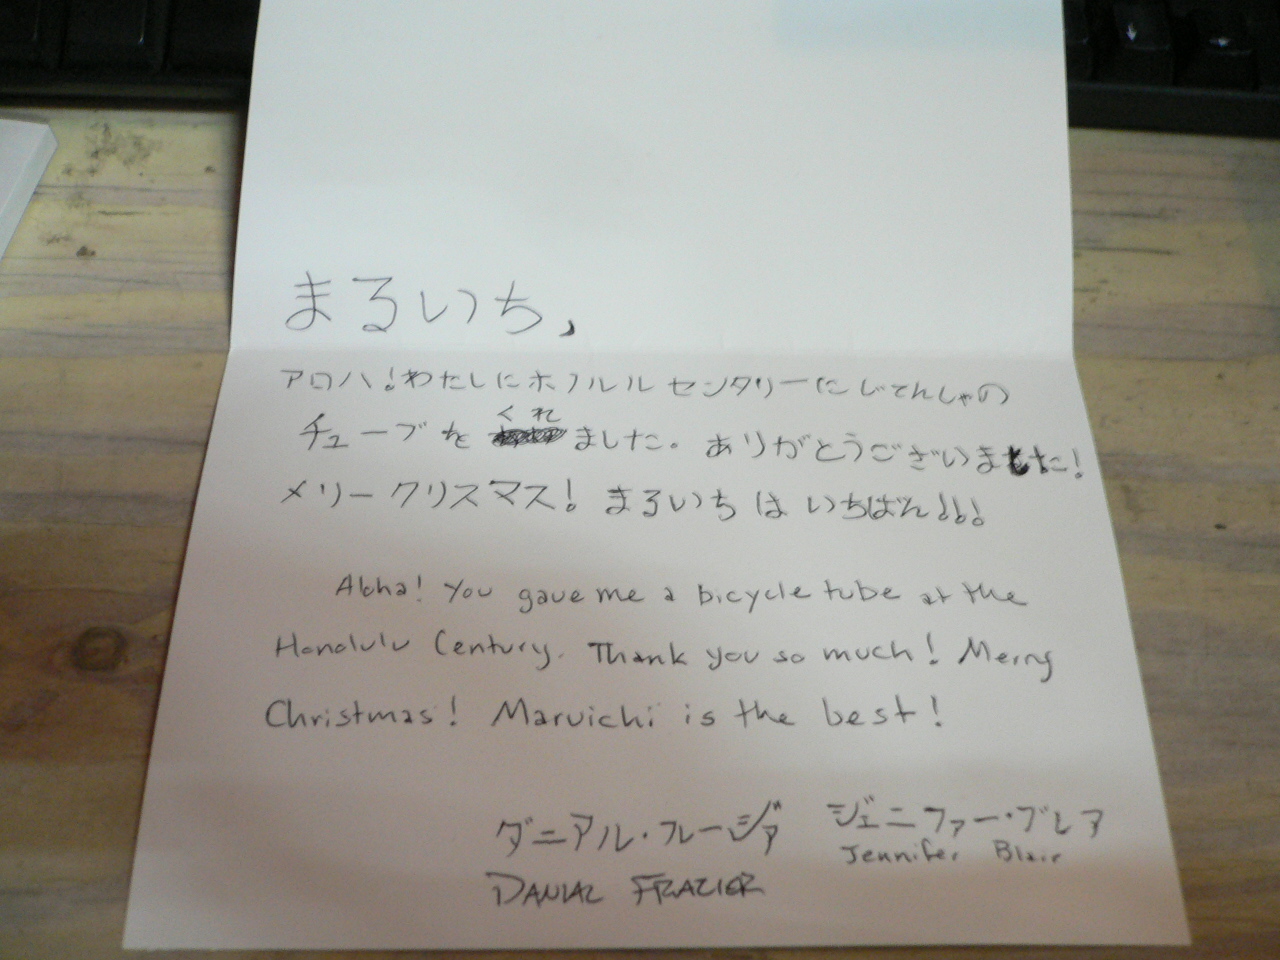 まるいち,
アロハ!わたしにホノルルセンタリーにじてんしゃの
チューブをくれました。ありがとうございました!
メリークリスマス! まるいちはいちばん!!!
Aloha! You gave me a bicycle tube at the
Honolulu Century. Thank you so much! Merry
Christmas! Maruichi is the best!
ダニアル・フレージァ ジェニファー・ブレア
DANIAL FRAZIER Jennifer Blair